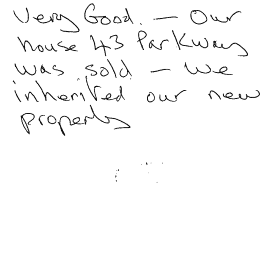 Very Good. - Our
house 43 Parkway
was sold - we
inherited our new
property